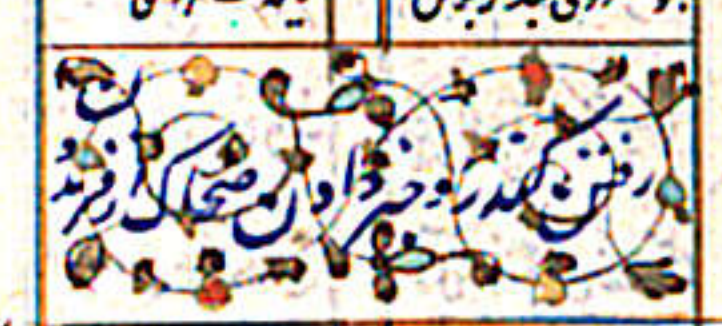 رفتن کندرو خبر دادن ضحاک از فریدون